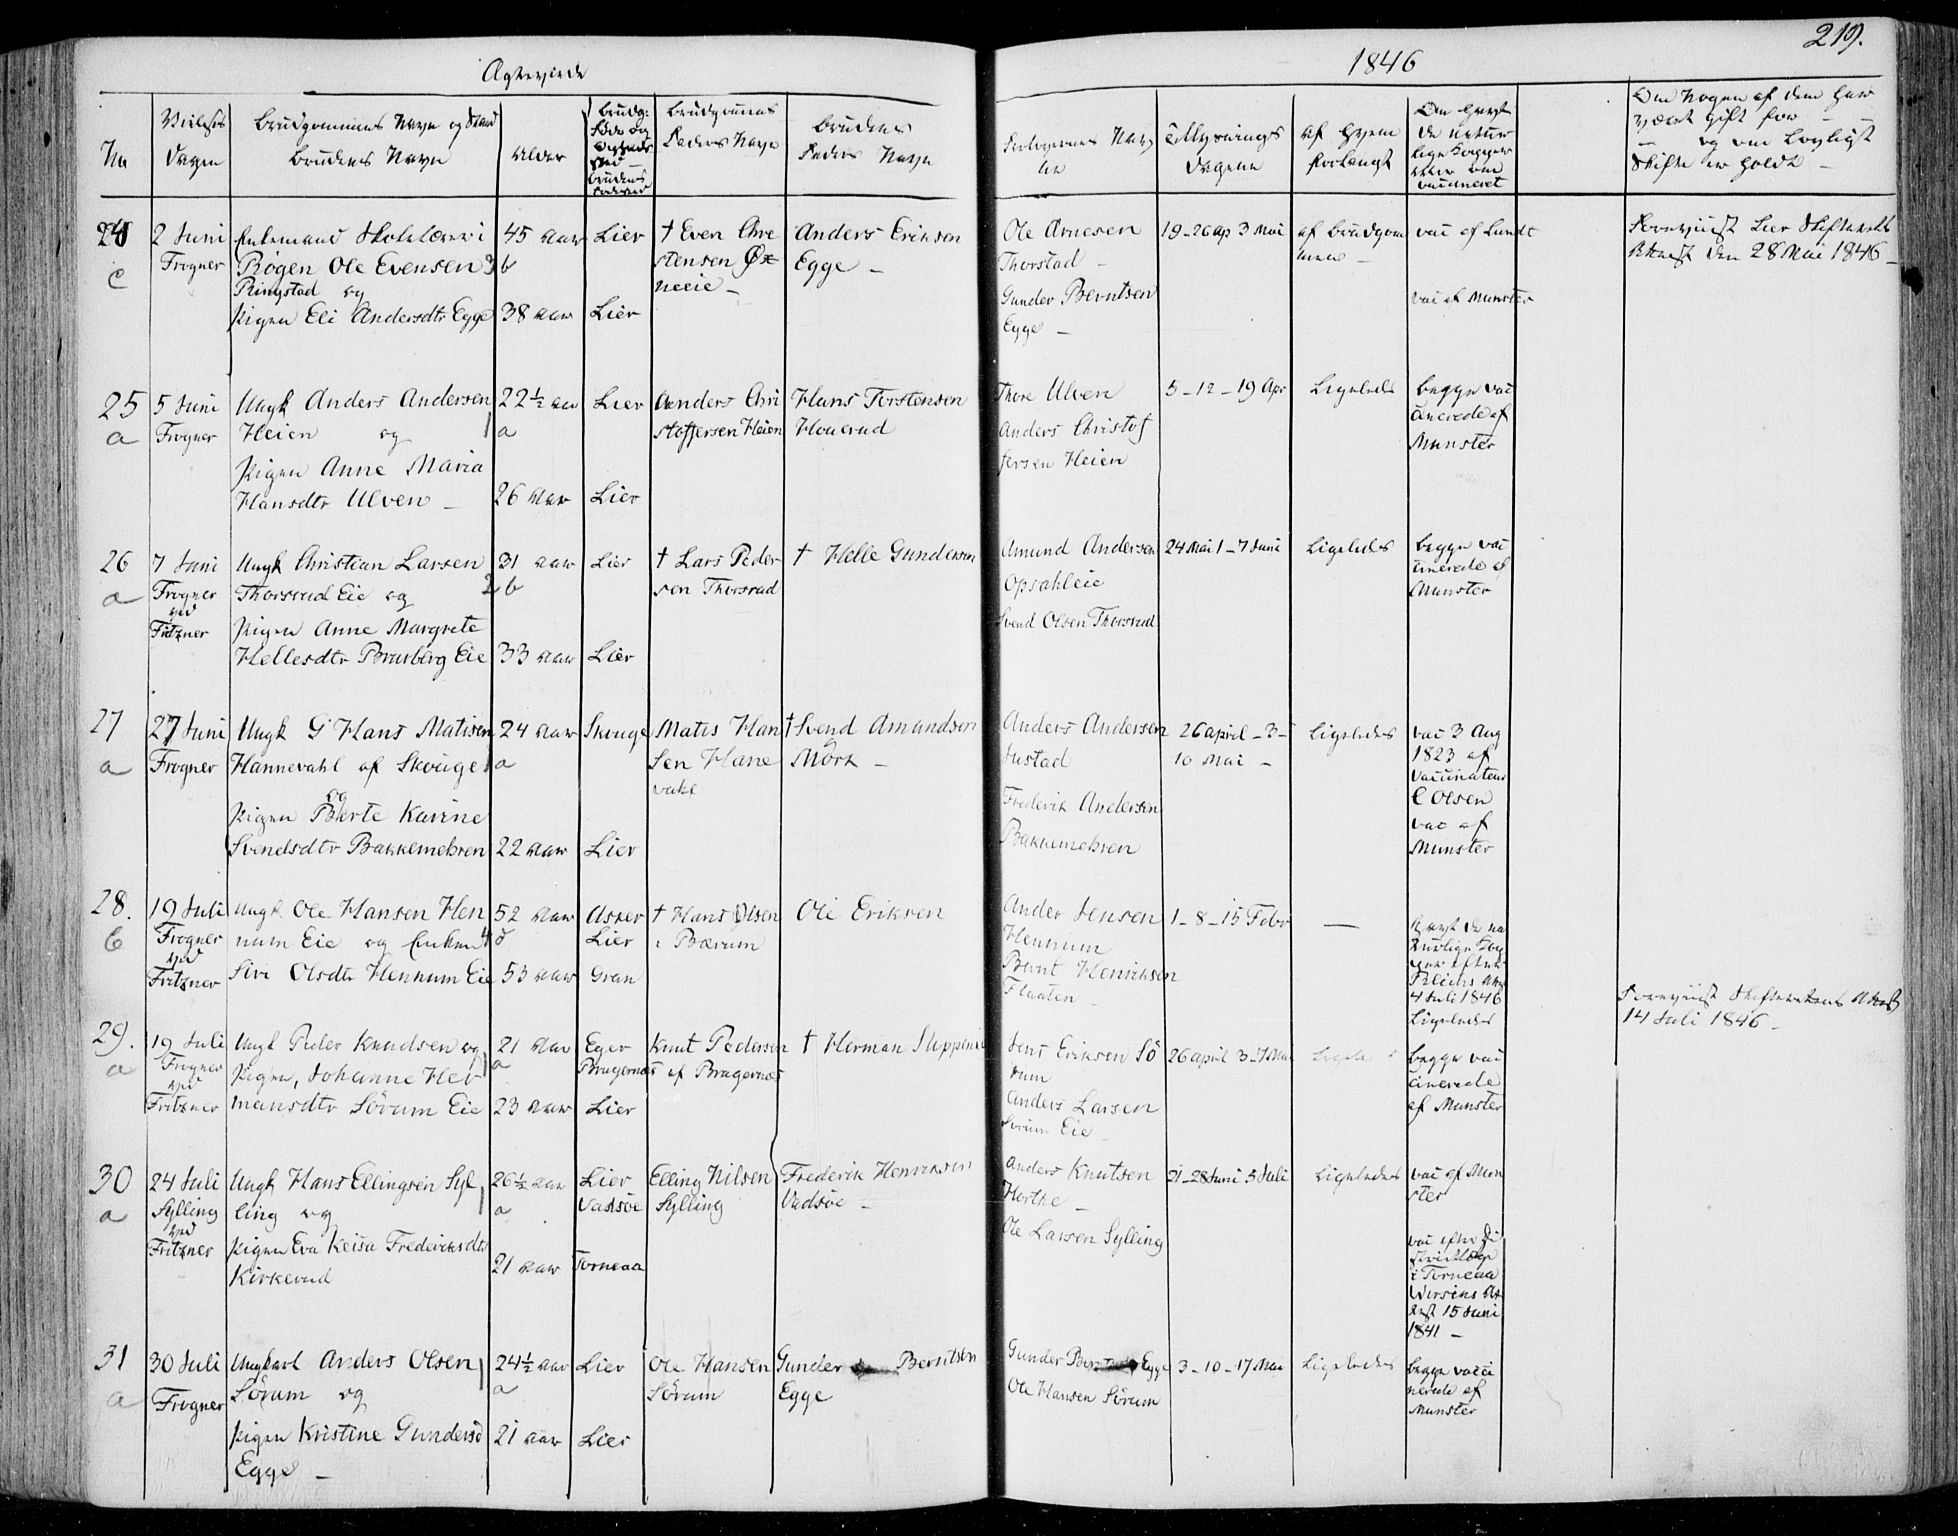 Ægteviede
1846
219.
No
Vielses Dagen
Brudgommens Navn og Stand
Brudens Navn
Alder
Brudg: Føde og
Brudens
Brudgommens Faders Navn
Brudens Faders Navn
Forlovernes Navne
Tillysnings Dagene
af Hvem forlangt
Om havt de naturlige Kopper eller om vaccineret
Om Nogen af dem har været gift før
og om lovligt Skifte er holdt
24
c
2 Juni
Frogner
Enkemand Skolelærer i
Røgen Ole Evensen
Ringstad og
Pigen Eli Andersdtr Egge
45 Aar
3 b
38 Aar
Lier
Lier
† Even Chre
stensen Øx
neeie
Anders Eriksen
Egge
Ole Arnesen
Thorstad
Gunder Berntsen
Egge
19-26 Ap 3 Mai
af Brudgom
men
vac af Lundt
vac af Munster
Foreviist Lier Skifteretts
Attest den 28 Mai 1846
25
a
5 Juni
Frogner
Ungk Anders Andersen
Heien og
Pigen Anne Maria
Hansdtr Ulven
22½ Aar
1 a
26 Aar
Lier
Lier
Anders Chri
stoffersen Heien
Hans Torstensen
Houerud
Thore Ulven
Anders Christof
fersen Heien
5-12-19 Apr
Ligeledes
Begge vac
cinerede af
Munster
26
a
7 Juni
Frogner
ved
Fritzner
Ungk Christian Larsen
Thorsrud Eie og
Pigen Anne Margrete
Hellesdtr Brusberg Eie
31 Aar
2 b
33 Aar
Lier
Lier
† Lars Peder
sen Thorsrud
† Helle Gundersen
Amund Andersen
Opsahleie
Svend Olsen Thorsrud
24 Mai 1-7 Juni
Ligeledes
Begge vac
cinerede af
Munster
27
a
27 Juni
Frogner
Ungk G Hans Matisen
Hannevahl af Skouge
og
Pigen Berte Karine
Svendsdtr Bakkemehren
24 Aar
1 a
22 Aar
Skouge
Lier
Matis Han
sen Hane
vahl
† Svend Amundsen
Mörk
Anders Andersen
Justad
Frederik Andersen
Bakkemehren
26 april-3-
10 Mai
Ligeledes
vac 3 Aug
1823 af
Vaccinateur
C Olsen
vac af
Munster
28.
b
19 Juli
Frogner
ved
Fritzner
Ungk Ole Hansen Hen
num Eie og Enken
Siri Olsdtr Hennum Eie
52 Aar
4 d
53 Aar
Asker
Lier
Gran
† Hans Olsen
i Bærum
Ole Eriksen
Ander Jensen
Hennum
Bernt Henriksen
Flaaten
1-8-15 Febr
—
Havt de na
turlige Kop
per efter
Blichs Att
4 Juli 1846
Ligeledes
Foreviist Skifterettens Attest
14 Juli 1846
29.
a
19 Juli
Frogner
ved
Fritzner
Ungk Peder Knudsen og
Pigen, Johanne Her
mansdtr Sörum Eie
21 Aar
1 a
23 Aar
Eger
Bragernæs
Lier
Knut Pedersen
af Bragernæs
† Herman
Jens Eriksen Sö
rum
Anders Larsen
Sörum Eie
26 april 3-7 Mai
Ligeledes
Begge vac
cinerede
af Munster
30
a
24 Juli
Sylling
ved
Fritzner
Ungk Hans Ellingsen Syl
ling og
Pigen Eva Keisa Frederiksdtr
Kirkerud
26½ Aar
1 a
21 Aar
Lier
Vadsöe
Torneaa
Elling Nilsen
Sylling
Frederik Henriksen
Vadsöe
Anders Knutsen
Horthe
Ole Larsen Sylling
21-28 Juni 5 Juli
Ligeledes
vac af Mun
ster
vac efter Di
striktlæge
i Torneaa
Wirsens At
test 15 Juni
1841
31
a
30 Juli
Frogner
Ungkarl Anders Olsen
Sörum og
Pigen Kristine Gundersd
Egge
24½ Aar
1 a
21 Aar
Lier
Lier
Ole Hansen
Sörum
Gunder Berntsen
Egge
Gunder Egge
Ole Hansen Sörum
3-10-17 Mai
Ligeledes
Begge vacci
nerede af
Munster